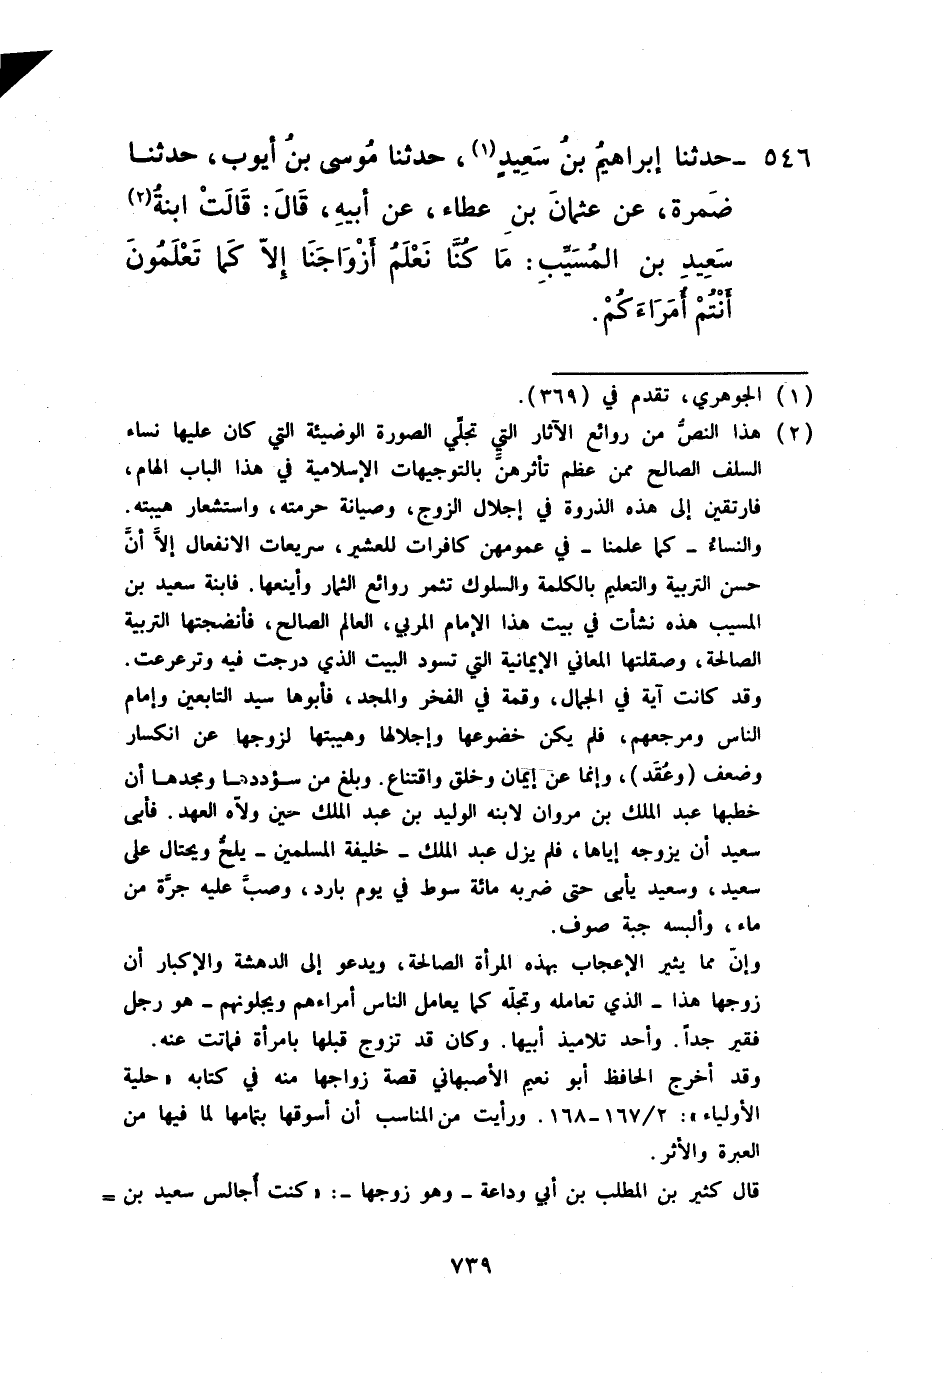 ٥٤٦ ـ حدثنا إبراهيمُ بنُ سَعِيدٍ(١)، حدثنا مُوسى بنُ أيوب، حدثنا
ضَمرة، عن عثمانَ بنِ عطاء، عن أبيهِ، قَالَ: قَالَتْ ابنةُ(٢)
سَعِيدِ بن المُسَيِّبِ: مَا كُنَّا نَعْلَمُ أَزْوَاجَنَا إِلاَّ كَمَا تَعْلَمُونَ
أَنْتُمْ أُمَرَاءَكُمْ.
(١) الجوهري، تقدم في (٣٦٩).
(٢) هذا النصُّ من روائع الآثار التي تجلّي الصورة الوضيئة التي كان عليها نساء
السلف الصالح ممن عظم تأثرهنَّ بالتوجيهات الإسلامية في هذا الباب الهام،
فارتقين إلى هذه الذروة في إجلال الزوج، وصيانة حرمته، واستشعار هيبته.
والنساءُ ـ كما علمنا ـ في عمومهن كافرات للعشير، سريعات الانفعال إلاَّ أنَّ
حسن التربية والتعليم بالكلمة والسلوك تثمر روائع الثمار وأينعها. فابنة سعيد بن
المسيب هذه نشأت في بيت هذا الإمام المربي، العالم الصالح، فأنضجتها التربية
الصالحة، وصقلتها المعاني الإيمانية التي تسود البيت الذي درجت فيه وترعرعت.
وقد كانت آية في الجمال، وقمة في الفخر والمجد، فأبوها سيد التابعين وإمام
الناس ومرجعهم، فلم يكن خضوعها وإجلالها وهيبتها لزوجها عن انكسار
وضعف (وعُقَد)، وإنما عن إيمان وخلق واقتناع. وبلغ من سؤددها ومجدها أن
خطبها عبد الملك بن مروان لابنه الوليد بن عبد الملك حين ولاّه العهد. فأبى
سعيد أن يزوجه إياها، فلم يزل عبد الملك ـ خليفة المسلمين ـ يلحُّ ويحتال على
سعيد، وسعيد يأبى حتى ضربه مائة سوط في يوم بارد، وصبَّ عليه جرَّة من
ماء، وألبسه جبة صوف.
وإنّ مما يثير الإعجاب بهذه المرأة الصالحة، ويدعو إلى الدهشة والإكبار أن
زوجها هذا ـ الذي تعامله وتجلّه كما يعامل الناس أمراءهم ويجلونهم ـ هو رجل
فقير جداً. وأحد تلاميذ أبيها. وكان قد تزوج قبلها بامرأة فماتت عنه.
وقد أخرج الحافظ أبو نعيم الأصبهاني قصة زواجها منه في كتابه «حلية
الأولياء»: ٢/١٦٧ـ١٦٨. ورأيت من المناسب أن أسوقها بتمامها لما فيها من
العبرة والأثر.
قال كثير بن المطلب بن أبي وداعة ـ وهو زوجها ـ: «كنت أُجالس سعيد بن =
٧٣٩